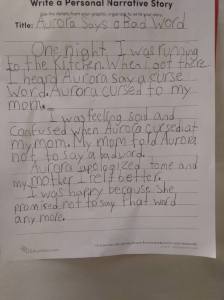 Write a Personal Narrative Story
Use the details from your graphic organizer to write your story.
Title: Aurora Says a Bad Word
One night, I was running
to the kitchen. When I got there
I heard Aurora say a curse
word. Aurora cursed to my
mom.
I was feeling sad and
confused when Aurora cursed at
my mom. My mom told Aurora
not to say a bad word.
Aurora apologized to me and
my mother I felt better.
I was happy because she
promised not to say that word
any more.